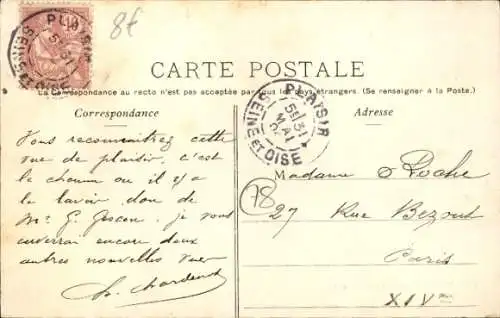 8€
PLAISIR
5E 31
SEINE ET OISE
CARTE POSTALE
La Correspondance au recto n'est pas acceptée par tous les pays étrangers. (Se renseigner à la Poste.)
Correspondance
Adresse
PLAISIR
5E 31
MAI
SEINE ET OISE
Vous reconnaitrez cette
vue de plaisir, c'est
le chemin ou il y a
le lavoir, don de
Mr G. je vous
enverrai encore deux
autres nouvelles vues
Madame Roche
78
27 Rue Bezout
Paris
XIVme